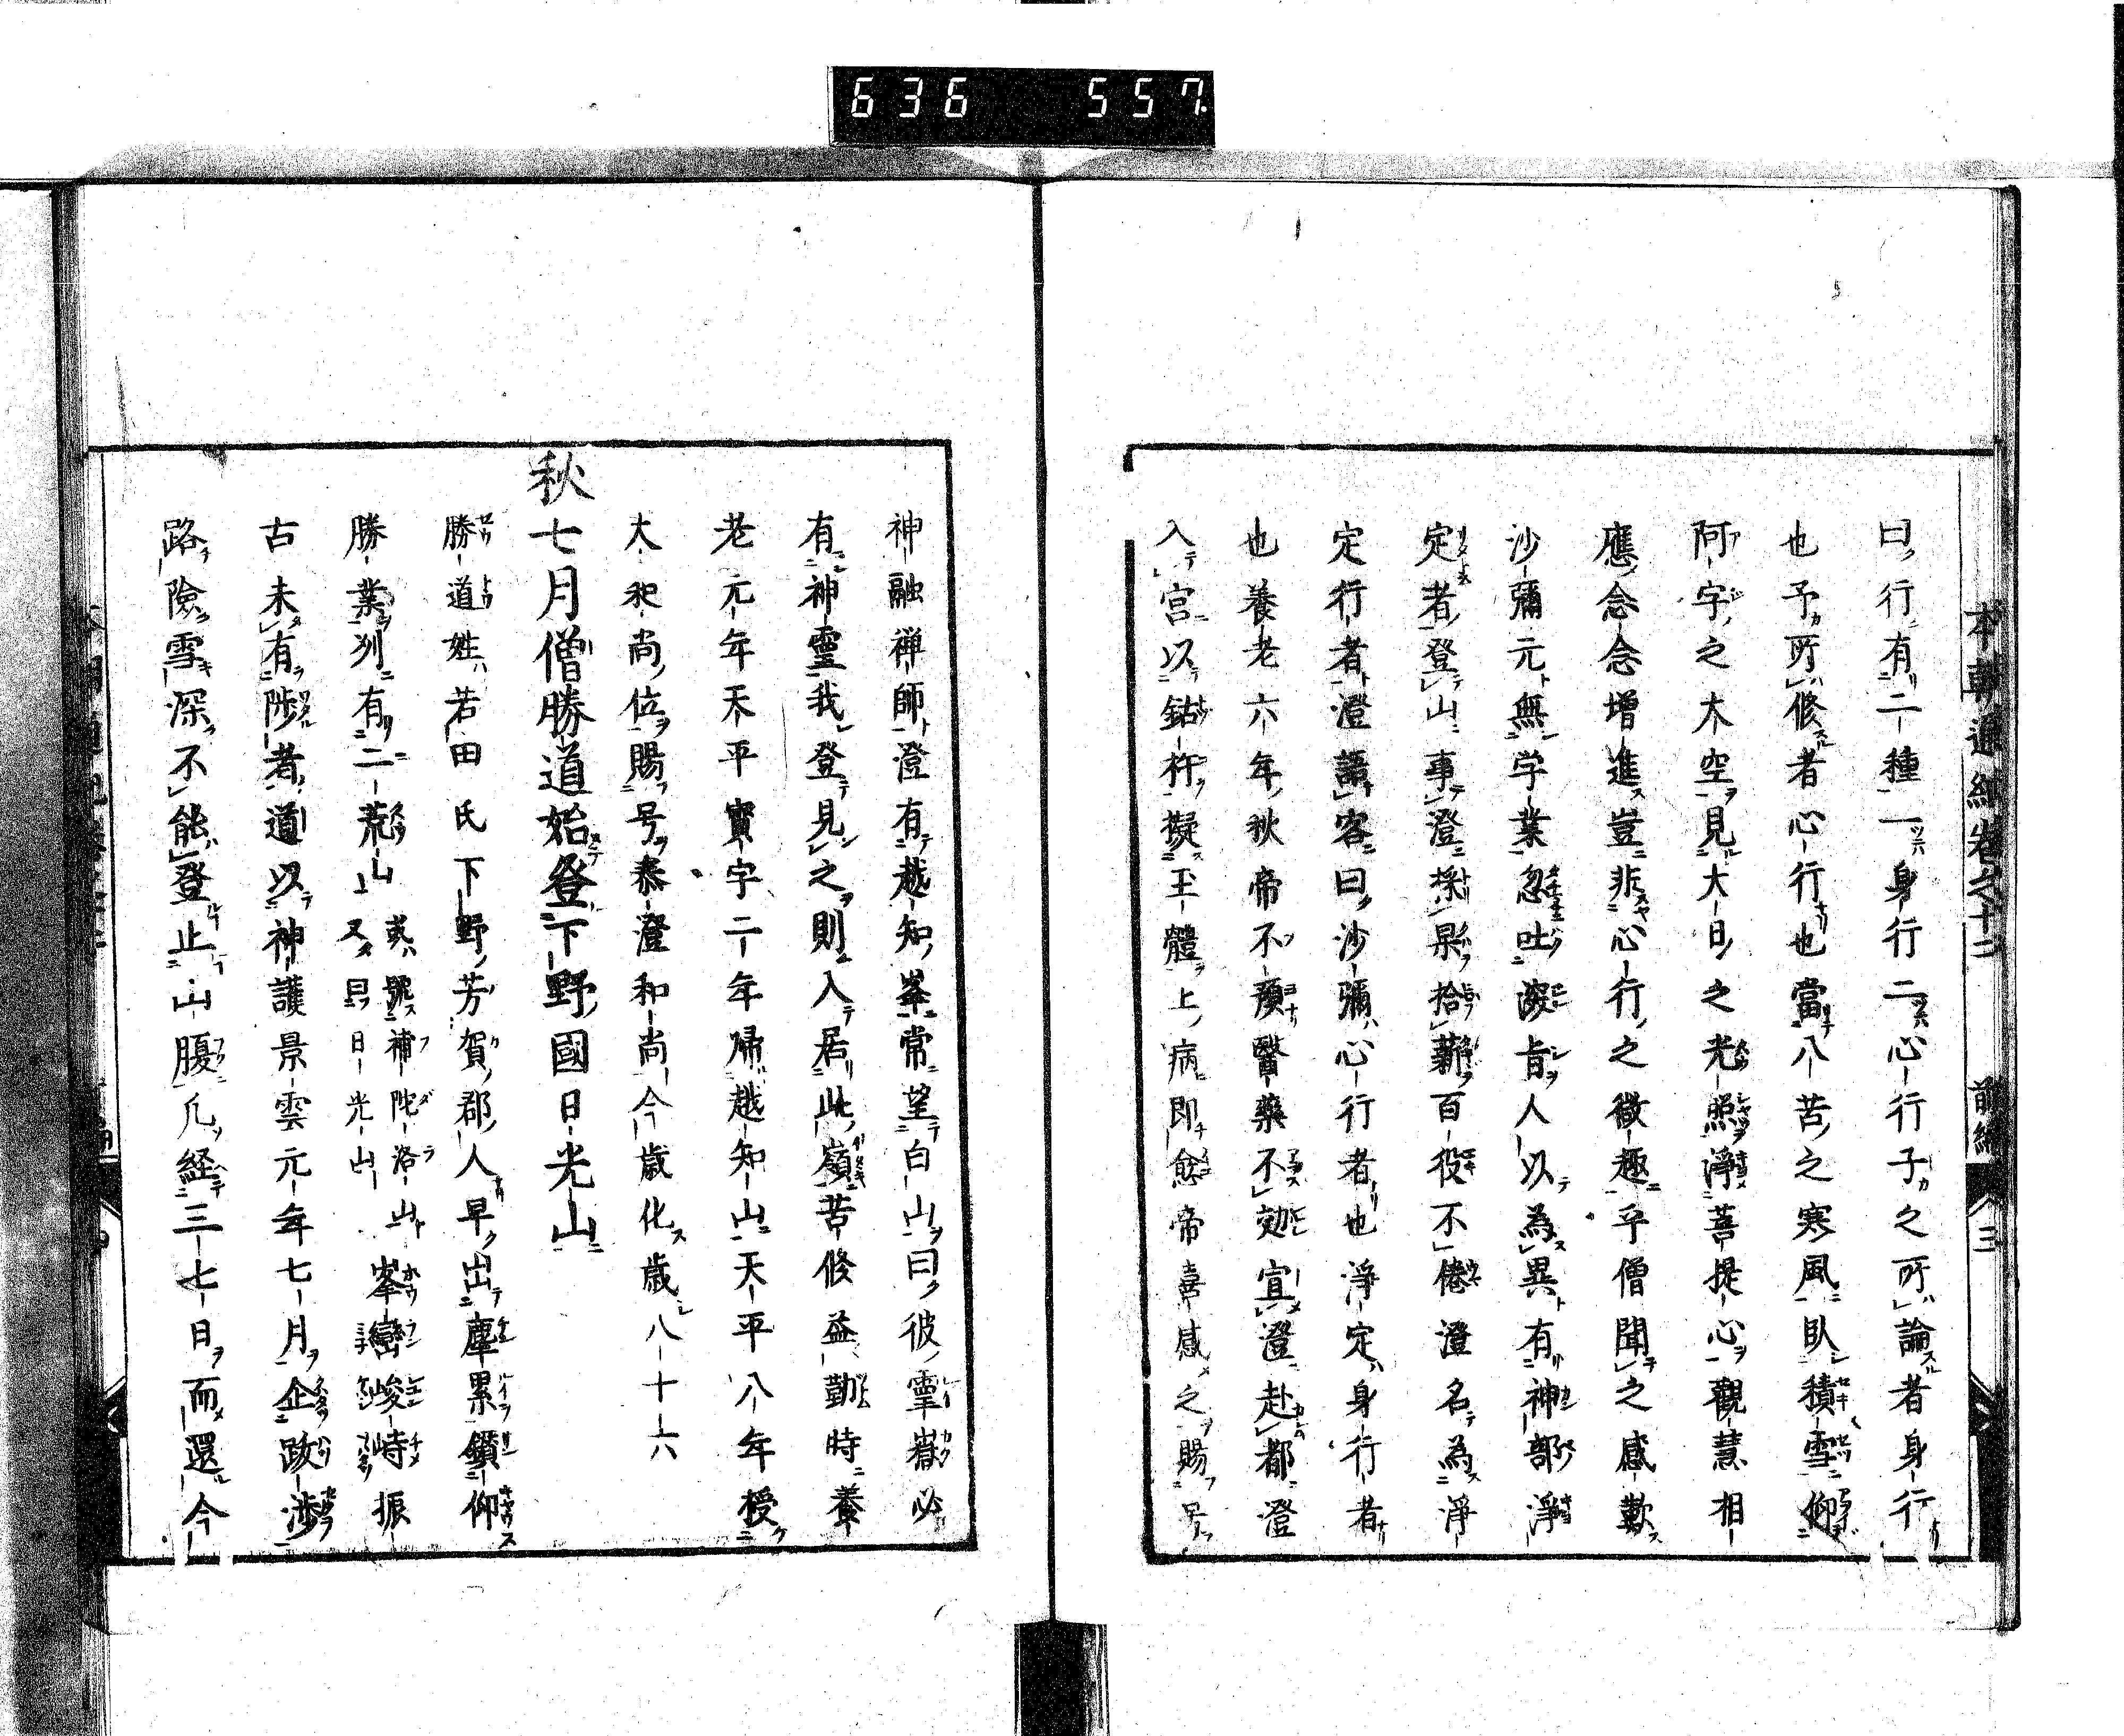 636 557
本朝通紀卷之十二 前編 三
曰行有二種一身行二心行子之所論者身行
也予所修者心行也當八苦之寒風臥積雪仰
阿字之大空見大日之光照淨菩提心觀慧相
應念念增進豈非心行之徵趣乎僧聞之感歎
沙彌元無学業忽吐深旨人以為異有神部淨
定者登山事澄採果拾薪百役不倦澄名為淨
定行者澄語客曰沙彌心行者也淨定身行者
也養老六年秋帝不預醫藥不効宣澄赴都澄
入宮以鈷杵擬玉體上病即愈帝喜感之賜号
神融禅師澄有越知峯常望白山曰彼霊嶽必
有神靈我登見之則入居此嶺苦修益勤時養
老元年天平寳字二年帰越知山天平八年授
大和尚位賜号泰澄和尚今歳化歳八十六
秋七月僧勝道始登下野國日光山
勝道姓若田氏下野芳賀郡人早出塵累鑽仰
勝業列有二荒山 或號補陀洛山又曰日光山 峯巒峻峙振
古未有陟者道以神護景雲元年七月企跋渉
路險雪深不能登止山腹凡経三七日而還今